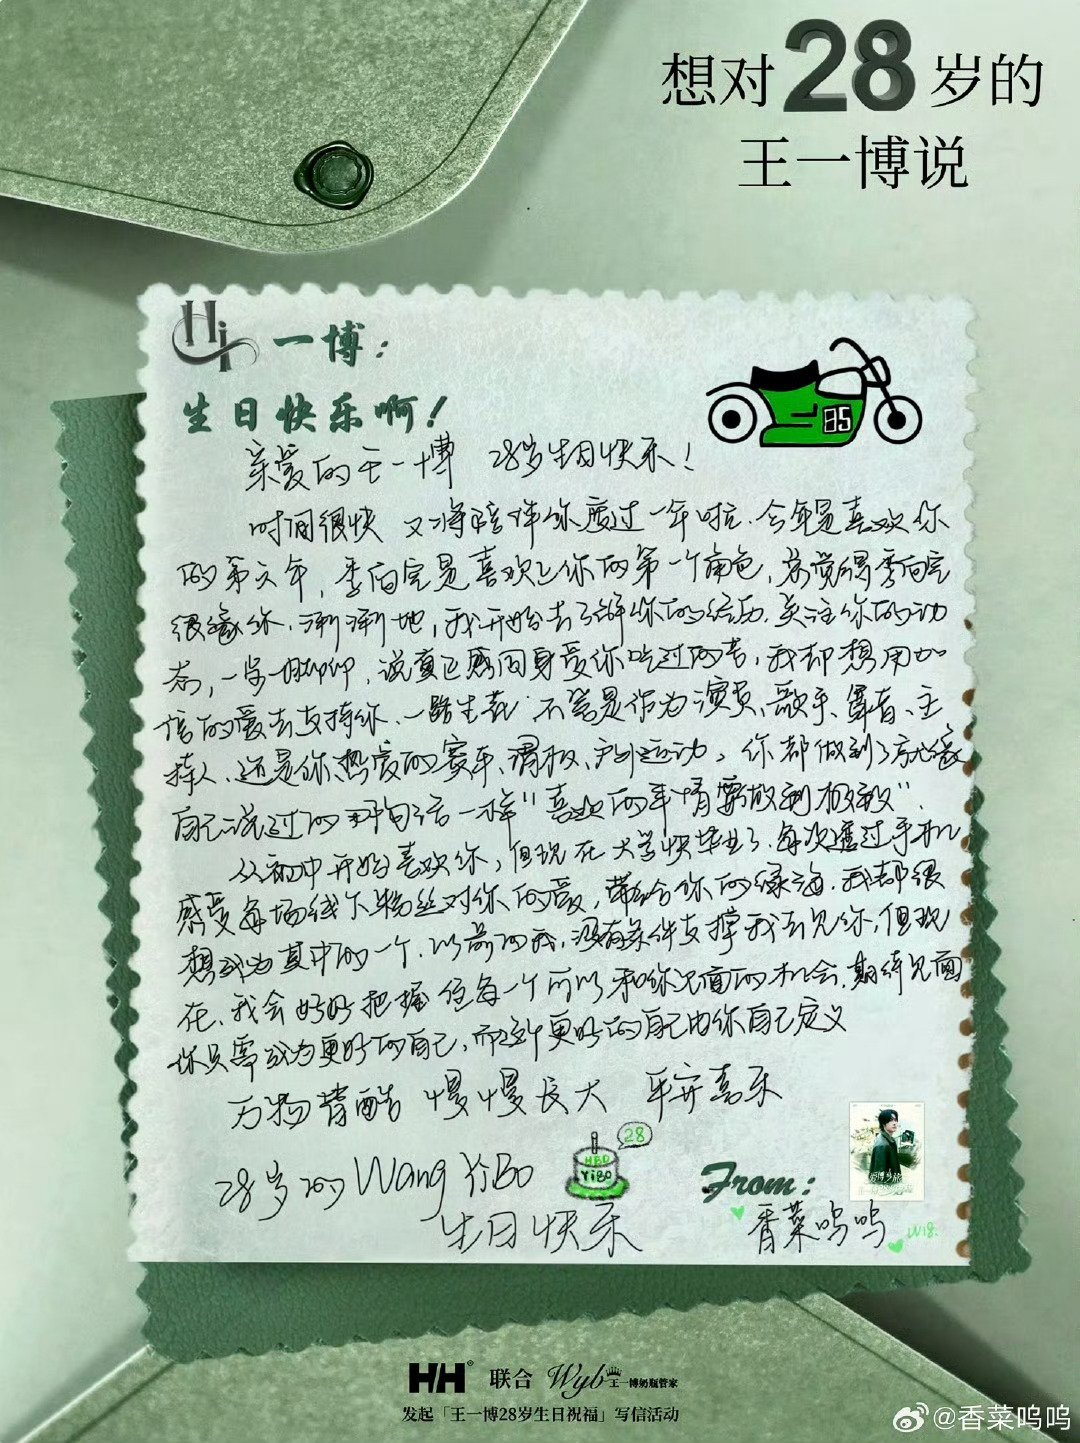 想对28岁的
王一博说
Hi 一博：
生日快乐啊！
85
亲爱的王一博 28岁生日快乐！
时间很快 又将陪伴你度过一年啦.今年是喜欢你
的第六年，季向空是喜欢上你的第一个角色，总觉得季向空
很像你.渐渐地，我开始去了解你的经历.关注你的动
态，一步一脚印，说真正感同身受你吃过的苦，我却想用加
倍的爱去支持你.一路生花 不管是作为演员、歌手、舞者、主
持人、还是你热爱的赛车、滑板、户外运动。你都做到了就像
自己说过的那句话一样“喜欢的事情要做到极致”.
从初中开始喜欢你，但现在大学快毕业了.每次透过手机
感受每场线下粉丝对你的爱，带给你的绿海.我却很
想成为其中的一个.以前的我，没有条件支撑我去见你，但现
在、我会好好把握住每一个可以和你见面的机会.期待见面
你只需成为更好的自己，而这个更好的自己由你自己定义
万物皆酷 慢慢长大 平安喜乐
28岁的Wang YiBo
生日快乐
28
HBD
YiBO
From：
香菜呜呜
HH® 联合 Wyb王一博奶瓶管家
发起「王一博28岁生日祝福」写信活动
@香菜呜呜